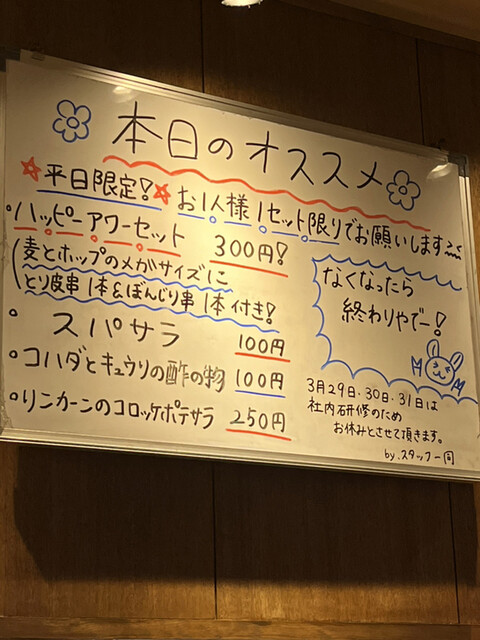 本日のオススメ
平日限定! お1人様1セット限りでお願いします
・ハッピーアワーセット 300円!
(麦とホップのメガサイズに
とり皮串1本&ぼんじり串1本付き!
・スパサラ 100円
・コハダとキュウリの酢の物 100円
・リンカーンのコロッケポテサラ 250円
なくなったら
終わりやでー!
3月29日・30日・31日は
社内研修のため
お休みとさせて頂きます。
by.スタッフ一同